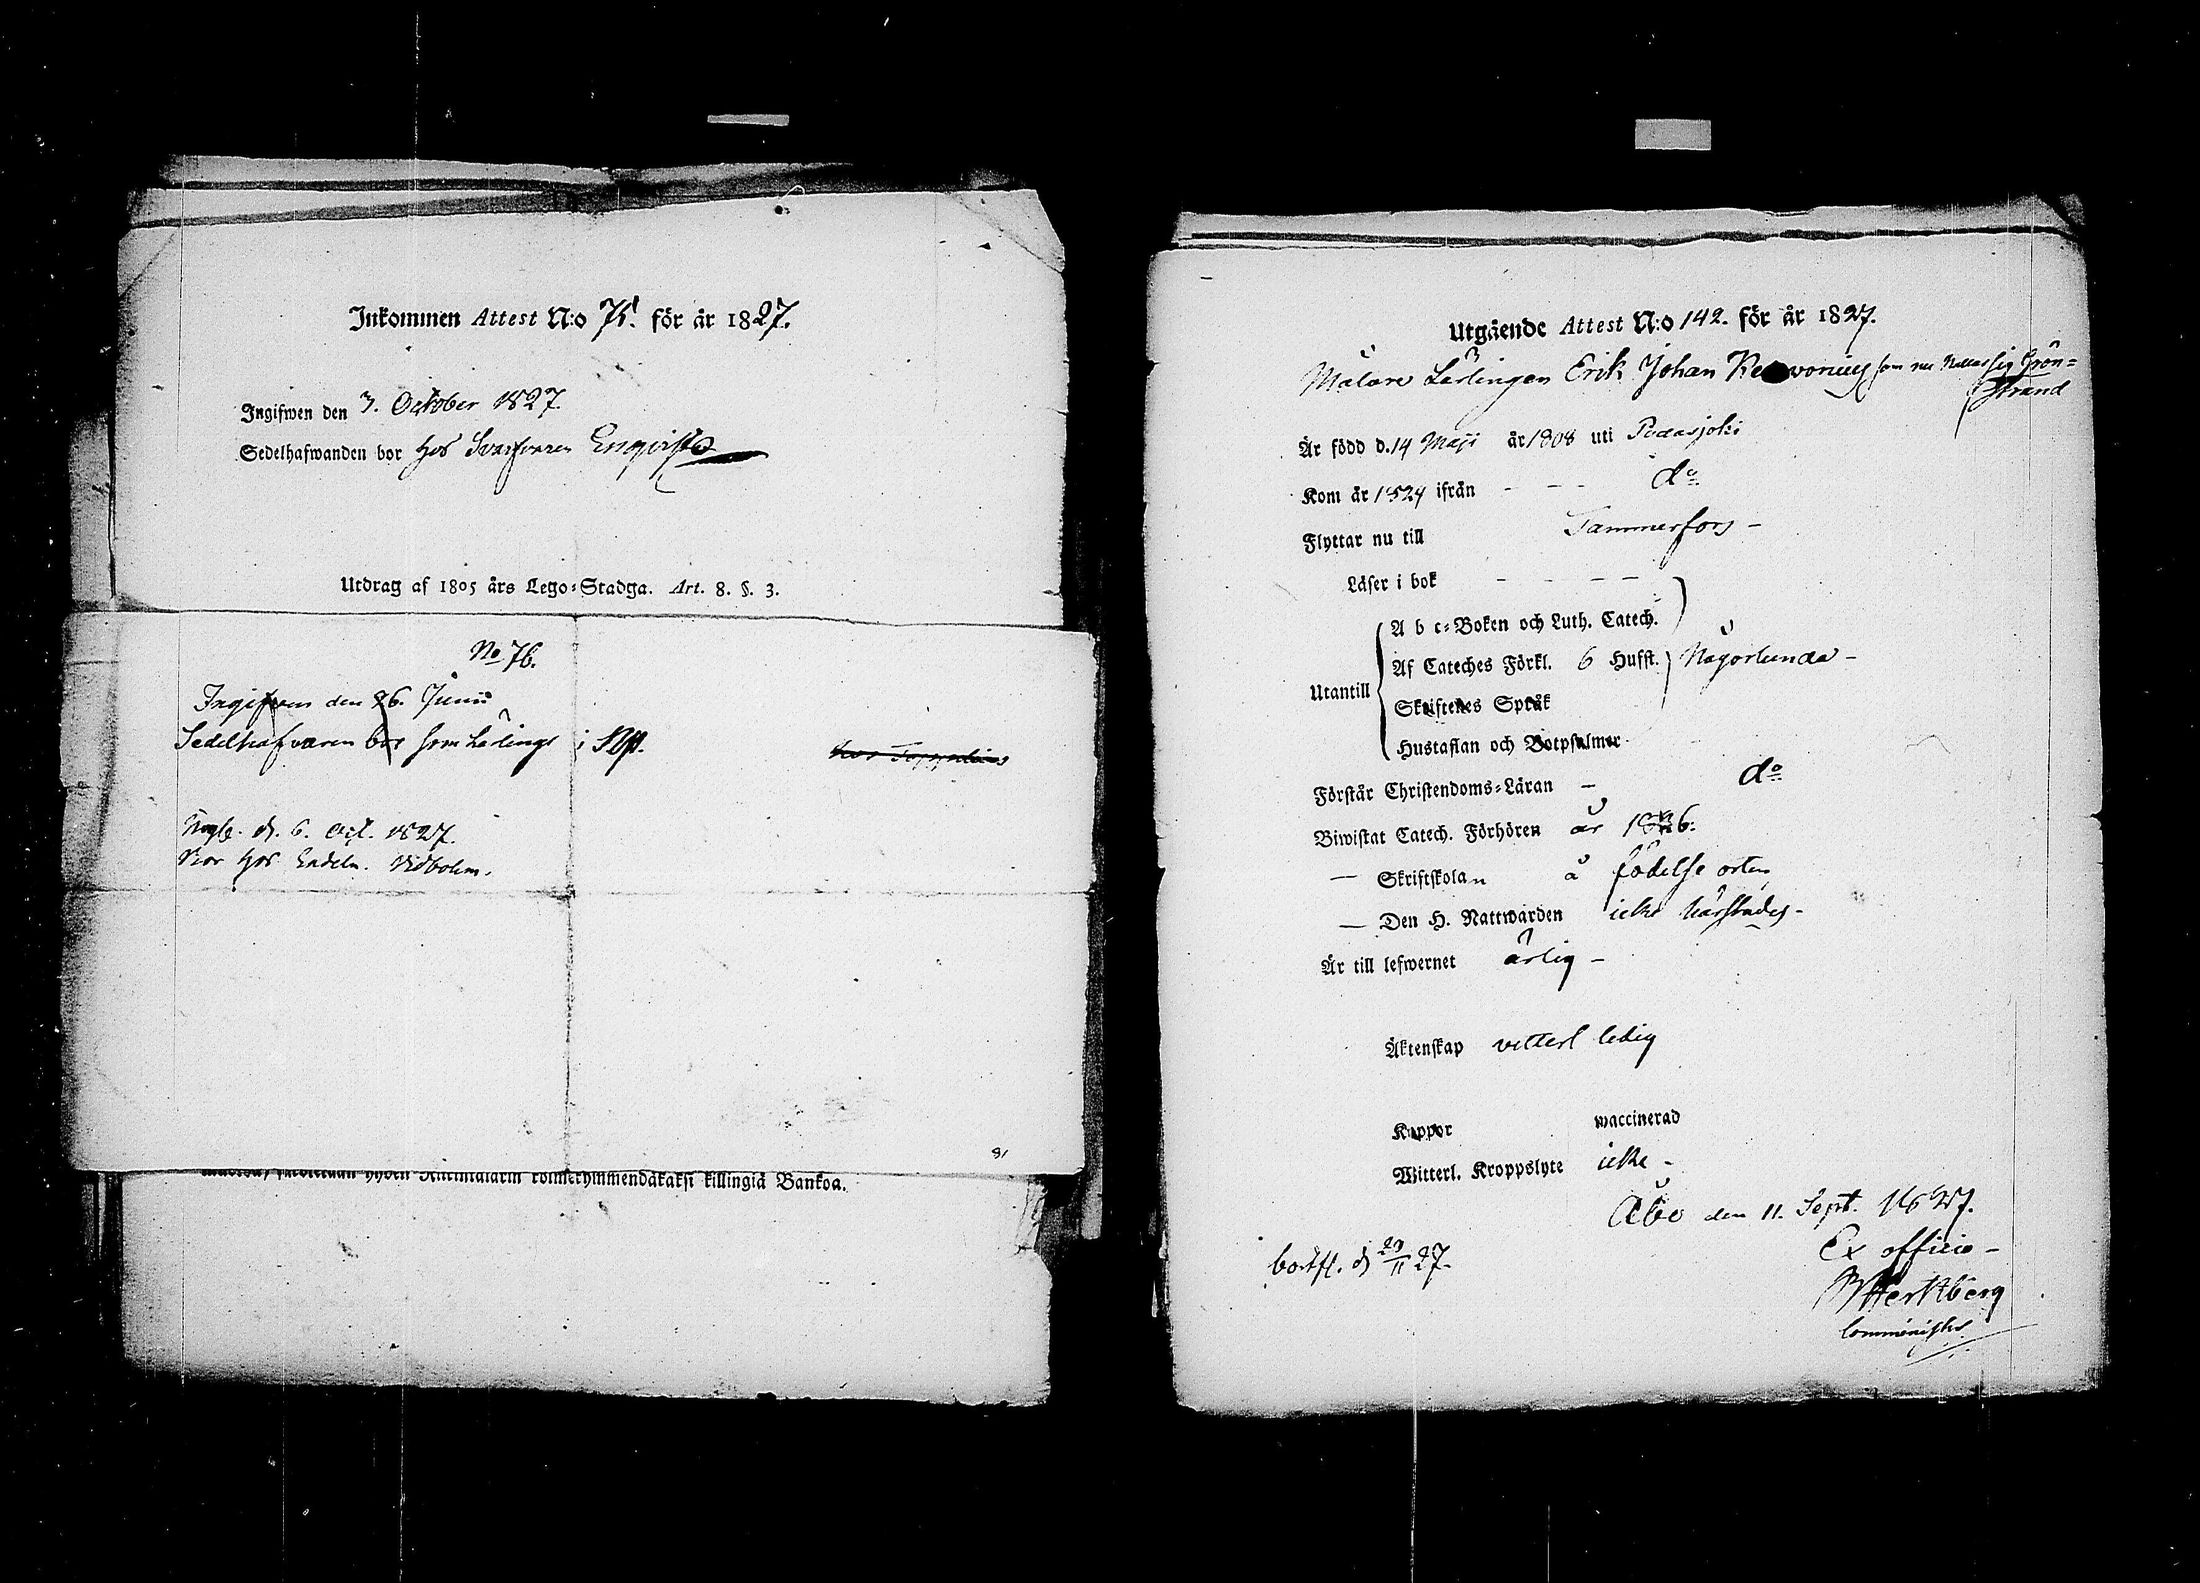 Inkommen Attest N:o 75. för år 1827.
Ingifwen den 3. October 1827.
Sedelhafwanden bor hos Svarfvaren Enqvist
Utdrag af 1805 års Lego-Stadga. Art. 8. §. 3.
No 76.
Ingifven den 26. Junii
Sedelhafvaren bor som Lärling i
Åbo Sept.
d. 6. Oct. 1827.
bor hos Enkeln. Widbolm.
81
kolmekymmendäkaksi killingiä Bankoa.
Utgående Attest N:o 142. för år 1827.
Målare Lärlingen Erik Johan som nu kallar sig Grön=
strand
Är född d. 14 Maji år 1808 uti Padasjoki
Kom år 1824 ifrån - - - do
Flyttar nu till Tammerfors -
Läser i bok - - - -
A b c-Boken och Luth. Catech.
Af Cateches Förkl. 6 Hufst. Någorlunda -
Utantill
Skriftenes Språk
Hustaflan och Botpsalmer
Förstår Christendoms-Läran - do
Biwistat Catech. Förhören år 1826.
— Skriftskolan å födelse orten
— Den H. Nattwarden icke härstädes -
Är till lefwernet ärlig -
Äktenskap vitterl ledig
Koppor waccinerad
Witterl. Kroppslyte icke -
Åbo den 11. Sept. 1827.
Ex officio -
bortfl. d 27.
Hertzberg
Comminister